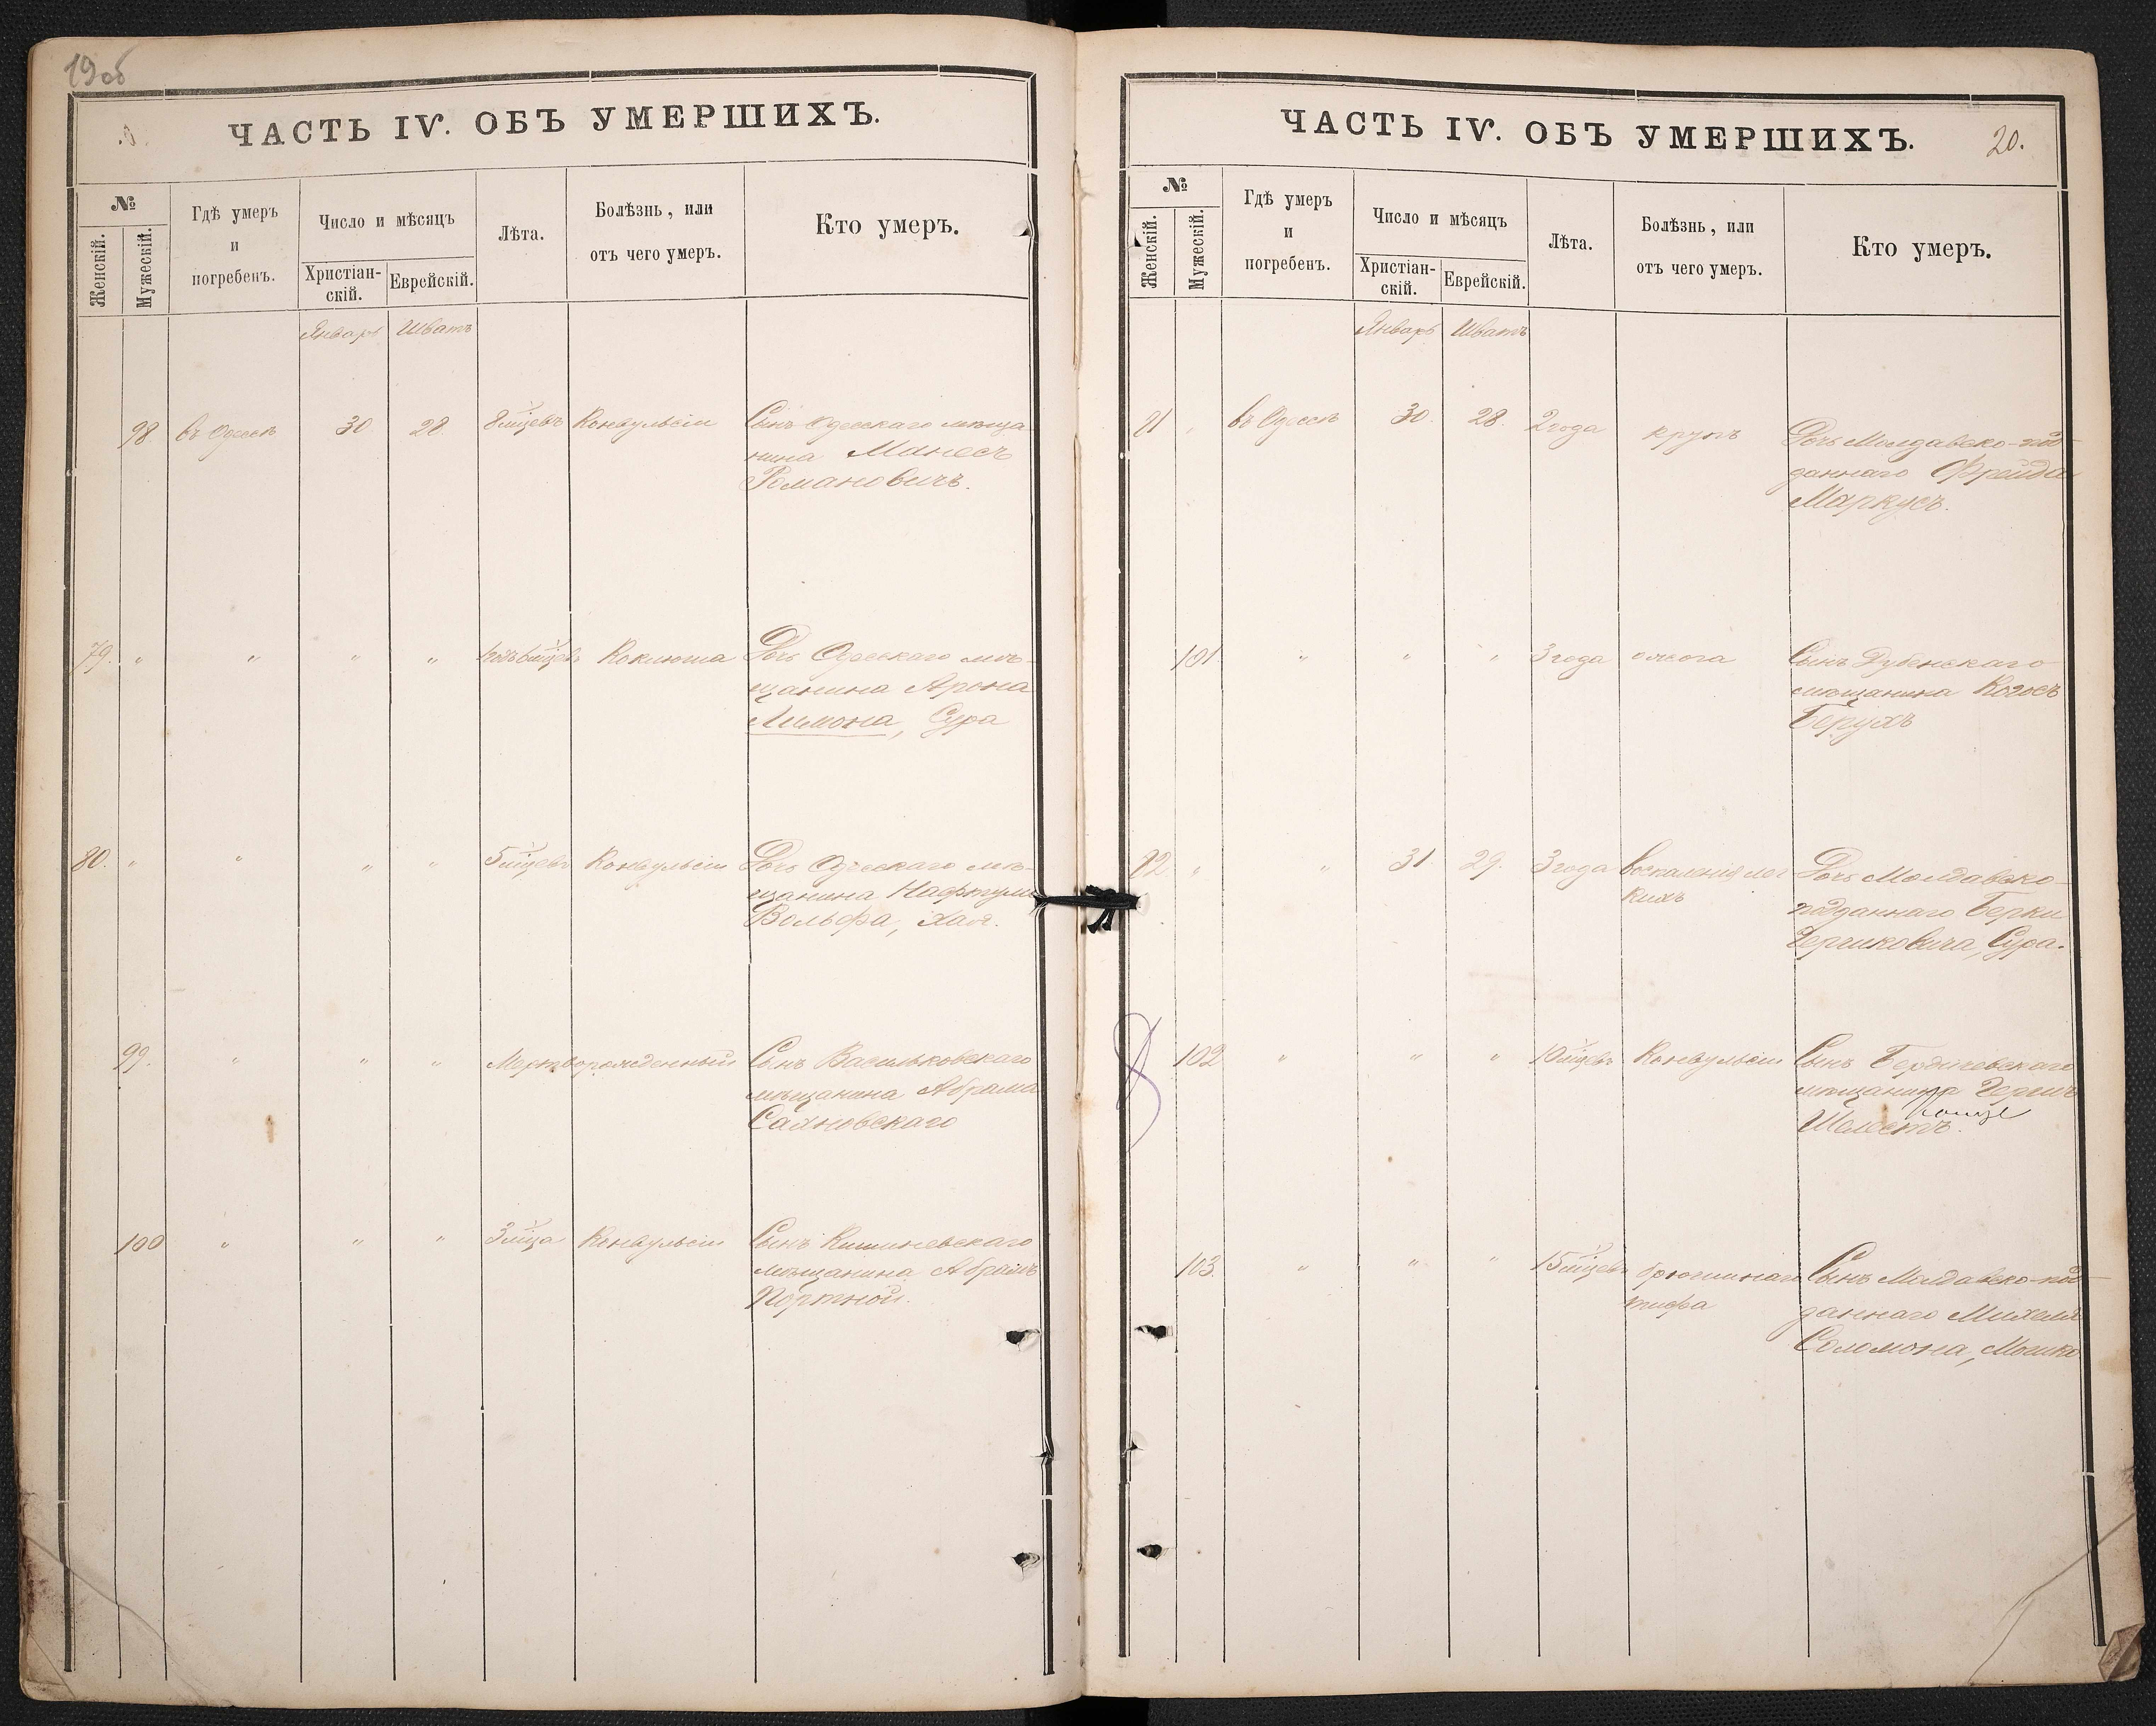 19об
ЧАСТЬ IV. ОБЪ УМЕРШИХЪ.
№
Женскій.
Мужескій.
Гдѣ умеръ
и
погребенъ.
Число и мѣсяцъ
Христіан-
скій.
Еврейскій.
Лѣта.
Болѣзнь, или
отъ чего умеръ.
Кто умеръ.
Январь Шватъ
98 въ Одессѣ 30 28. 8 мѣцевъ Конвульсіи Сынъ Одесскаго мѣща-
нина Манесъ
Романовичъ.
79. " " " " Коклюша Дочь Одесскаго мѣ-
щанина Арона
Лимона, Сура
80. " " " " 5 мѣцевъ Конвульсіи Дочь Одесскаго мѣ-
щанина Нафтули
Вольфа, Хая.
99. " " " Мертворожденный Сынъ Васильковскаго
мѣщанина Абрама
Сахновскаго
100 " " " 3 мѣца Конвульсіи Сынъ Кишиневскаго
мѣщанина Абрамъ
Портной.
ЧАСТЬ IV. ОБЪ УМЕРШИХЪ.
20.
№
Женскій.
Мужескій.
Гдѣ умеръ
и
погребенъ.
Число и мѣсяцъ
Христіан-
скій.
Еврейскій.
Лѣта.
Болѣзнь, или
отъ чего умеръ.
Кто умеръ.
Январь Шватъ
81 " въ Одессѣ 30. 28. 2 года крупъ Дочь Молдавско-под-
даннаго Фрейда
Маркусъ.
101 " " " 3 года ожога Сынъ Дубенскаго
мѣщанина Когосъ
Берухъ
82. " " 31. 29. 3 года Воспаленія лег
кихъ Дочь Молдавско-
подданнаго Берки
Гершковича, Сура.
102 " " " 10 мѣцевъ Конвульсіи Сынъ Бердичевскаго
мѣщанина Гершъ
Шолестъ.
103. " " " 15 мѣцевъ брюшинаго
тифа Сынъ Молдавско-под-
даннаго Михеля
Соломона, Мошко